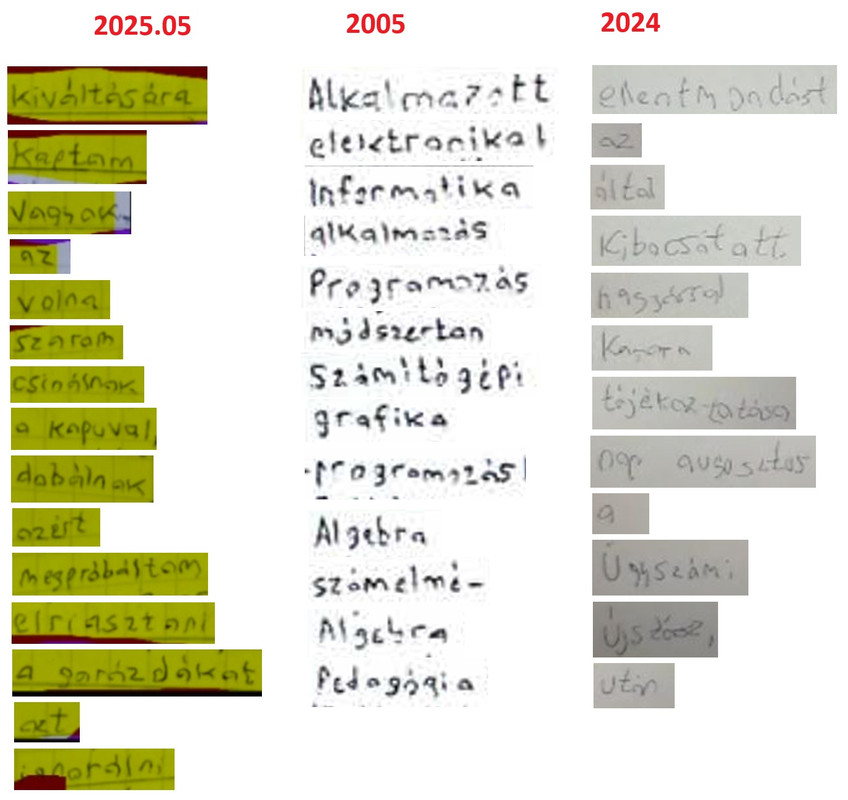 2025.05
kiváltására
Kaptam
Vagyok
az
volna
szaram
csinálnak
a kapuval,
dobálnak
azért
megpróbáltam
elriasztani
a garázdákat
azt
ignorálni
2005
Alkalmazott
elektronikal
Informatika
alkalmazás
Programozás
módszertan
Számítógépi
grafika
programozás
Algebra
számelmé-
Algebra
Pedagógia
2024
ellentmondást
az
által
Kibocsátatt.
Kamara
tájékoz-tatása
nap augusztus
a
Ügyszám:
után